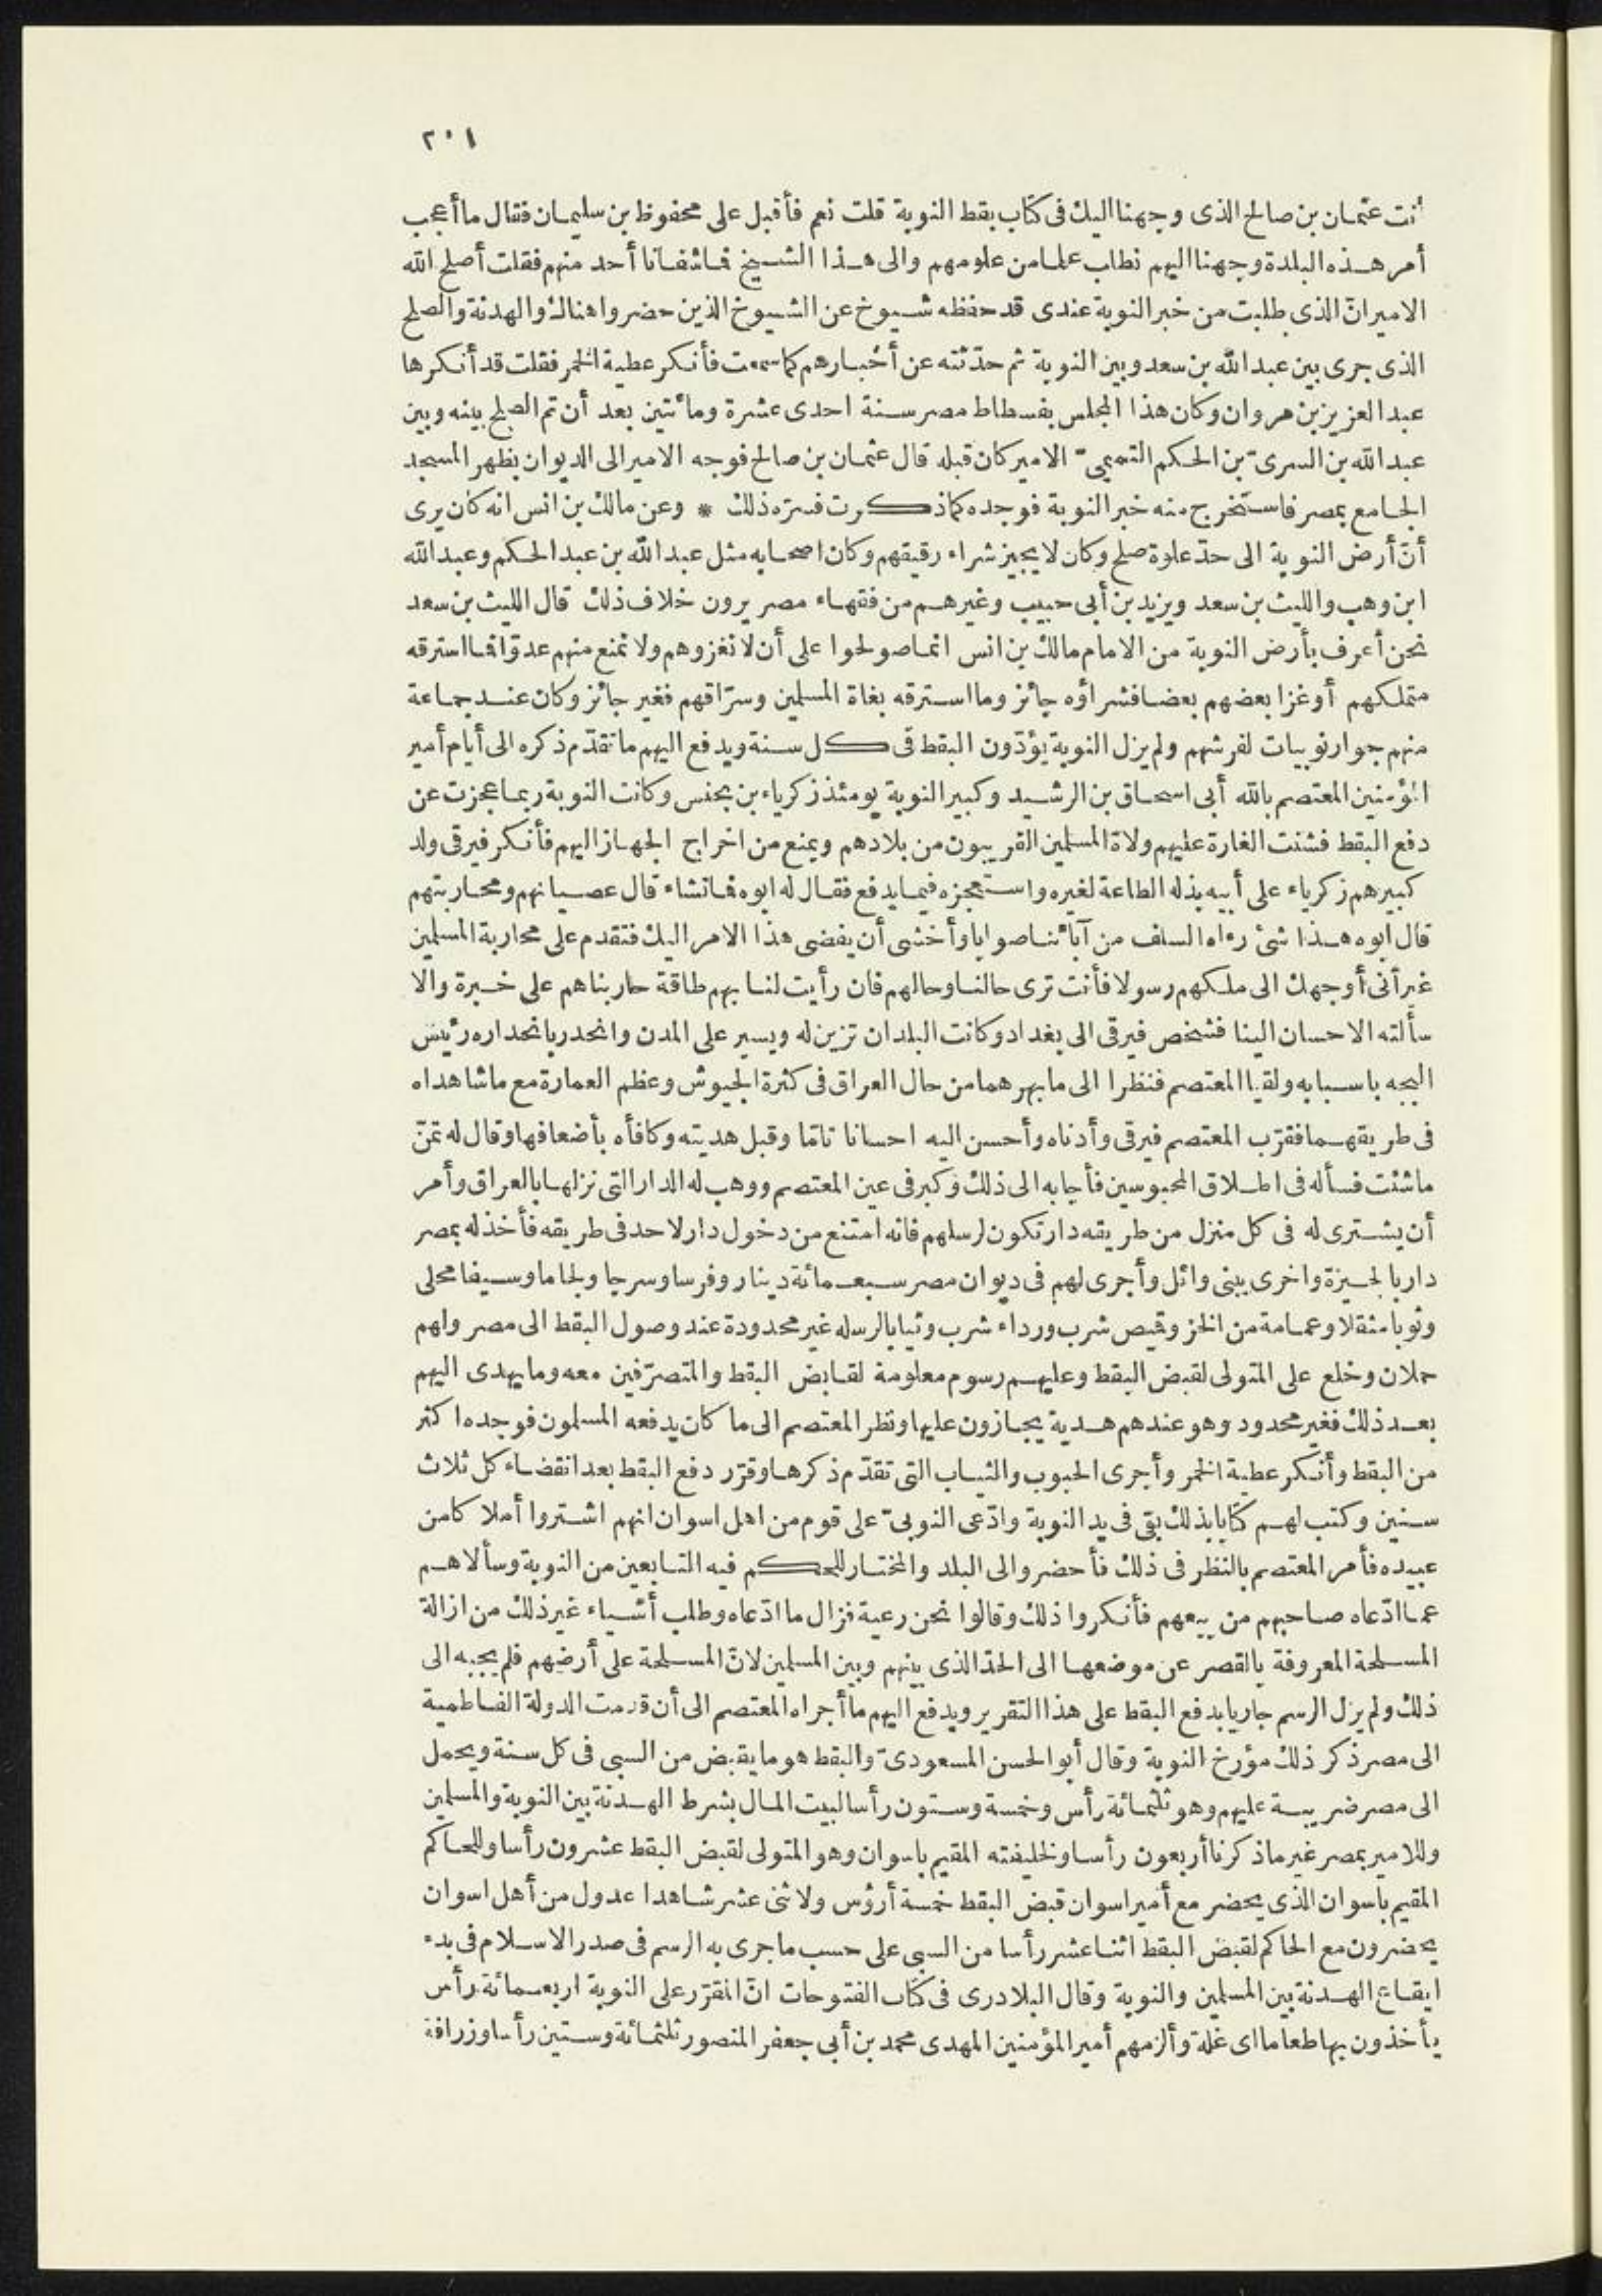 ٢٠١
أنت عثمان بن صالح الذى وجهنا اليك فى كتاب بقط النوبة قلت نعم فأقبل على محفوظ بن سليمان فقال ما أعجب
أمر هذه البلدة وجهنا اليهم نطلب علما من علومهم والى هذا الشيخ فما شفانا أحد منهم فقلت أصلح الله
الامير انّ الذى طلبت من خبر النوبة عندى قد حفظه شيوخ عن الشيوخ الذين حضروا هناك والهدنة والصلح
الذى جرى بين عبد الله بن سعد وبين النوبة ثم حدّثته عن أخبارهم كما سمعت فأنكر عطية الخمر فقلت قد أنكرها
عبد العزيز بن مروان وكان هذا المجلس بفسطاط مصر سنة احدى عشرة ومائتين بعد أن تم الصلح بينه وبين
عبد الله بن السرىّ بن الحكم التميمىّ الامير كان قبله قال عثمان بن صالح فوجه الامير الى الديوان بظهر المسجد
الجامع بمصر فاستخرج منه خبر النوبة فوجده كما ذكرت فسرّه ذلك * وعن مالك بن انس انه كان يرى
أنّ أرض النوبة الى حدّ علوة صلح وكان لا يجيز شراء رقيقهم وكان اصحابه مثل عبد الله بن عبد الحكم وعبد الله
ابن وهب والليث بن سعد ويزيد بن أبى حبيب وغيرهم من فقهاء مصر يرون خلاف ذلك قال الليث بن سعد
نحن أعرف بأرض النوبة من الامام مالك بن انس انما صولحوا على أن لا نغزوهم ولا نمنع منهم عدوّا فما استرقه
متملكهم أو غزا بعضهم بعضا فشراؤه جائز وما استرقه بغاة المسلمين وسرّاقهم فغير جائز وكان عند جماعة
منهم جوار نوبيات لفرشهم ولم يزل النوبة يؤدّون البقط فى كل سنة ويدفع اليهم ما تقدّم ذكره الى أيام أمير
المؤمنين المعتصم بالله أبى اسحاق بن الرشيد وكبير النوبة يومئذ زكرياء بن بحنس وكانت النوبة ربما عجزت عن
دفع البقط فشنت الغارة عليهم ولاة المسلمين القريبون من بلادهم ويمنع من اخراج الجهاز اليهم فأنكر فيرقى ولد
كبيرهم زكرياء على أبيه بذله الطاعة لغيره واستعجزه فيما يدفع فقال له ابوه فما تشاء قال عصيانهم ومحاربتهم
قال ابوه هذا شئ رءاه السلف من آبائنا صوابا وأخشى أن يفضى هذا الامر اليك فتقدم على محاربة المسلمين
غير أنى أوجهك الى ملكهم رسولا فأنت ترى حالنا وحالهم فان رأيت لنا بهم طاقة حاربناهم على خبرة والا
سألته الاحسان الينا فشخص فيرقى الى بغداد وكانت البلدان تزين له ويسير على المدن وانحدر بانحداره رئيس
البجه باسبابه ولقيا المعتصم فنظرا الى ما بهرهما من حال العراق فى كثرة الجيوش وعظم العمارة مع ما شاهداه
فى طريقهما فقرّب المعتصم فيرقى وأدناه وأحسن اليه احسانا تامّا وقبل هديته وكافأه بأضعافها وقال له تمنّ
ما شئت فسأله فى اطلاق المحبوسين فأجابه الى ذلك وكبر فى عين المعتصم ووهب له الدار التى نزلها بالعراق وأمر
أن يشترى له فى كل منزل من طريقه دار تكون لرسلهم فانه امتنع من دخول دار لاحد فى طريقه فأخذ له بمصر
دار بالجيزة واخرى ببنى وائل وأجرى لهم فى ديوان مصر سبعمائة دينار وفرسا وسرجا ولجاما وسيفا محلى
وثوبا مثقلا وعمامة من الخز وقميص شرب ورداء شرب وثيابا لرسله غير محدودة عند وصول البقط الى مصر ولهم
حملان وخلع على المتولى لقبض البقط وعليهم رسوم معلومة لقابض البقط والمتصرّفين معه وما يهدى اليهم
بعد ذلك فغير محدود وهو عندهم هدية يجازون عليها ونظر المعتصم الى ما كان يدفعه المسلمون فوجده اكثر
من البقط وأنكر عطية الخمر وأجرى الحبوب والثياب التى تقدّم ذكرها وقرّر دفع البقط بعد انقضاء كل ثلاث
سنين وكتب لهم كتابا بذلك بقى فى يد النوبة وادّعى النوبىّ على قوم من اهل اسوان انهم اشتروا أملاكا من
عبيده فأمر المعتصم بالنظر فى ذلك فأحضر والى البلد والمختار للحكم فيه التابعين من النوبة وسألاهم
عما ادّعاه صاحبهم من بيعهم فأنكروا ذلك وقالوا نحن رعية فزال ما ادّعاه وطلب أشياء غير ذلك من ازالة
المسلحة المعروفة بالقصر عن موضعها الى الحدّ الذى بينهم وبين المسلمين لانّ المسلحة على أرضهم فلم يجبه الى
ذلك ولم يزل الرسم جاريا بدفع البقط على هذا التقرير ويدفع اليهم ما أجراه المعتصم الى أن قدمت الدولة الفاطمية
الى مصر ذكر ذلك مؤرخ النوبة وقال أبو الحسن المسعودىّ والبقط هو ما يقبض من السبى فى كل سنة ويحمل
الى مصر ضريبة عليهم وهو ثلثمائة رأس وخمسة وستون رأسا لبيت المال بشرط الهدنة بين النوبة والمسلمين
وللامير بمصر غير ما ذكرنا أربعون رأسا ولخليفته المقيم باسوان وهو المتولى لقبض البقط عشرون رأسا وللحاكم
المقيم باسوان الذى يحضر مع أمير اسوان قبض البقط خمسة أرؤس ولاثنى عشر شاهدا عدول من أهل اسوان
يحضرون مع الحاكم لقبض البقط اثنا عشر رأسا من السبى على حسب ما جرى به الرسم فى صدر الاسلام فى بدء
ايقاع الهدنة بين المسلمين والنوبة وقال البلادرى فى كتاب الفتوحات انّ المقرّر على النوبة اربعمائة رأس
يأخذون بها طعاما اى غلة وألزمهم أمير المؤمنين المهدى محمد بن أبى جعفر المنصور ثلثمائة وستين رأسا وزرافة